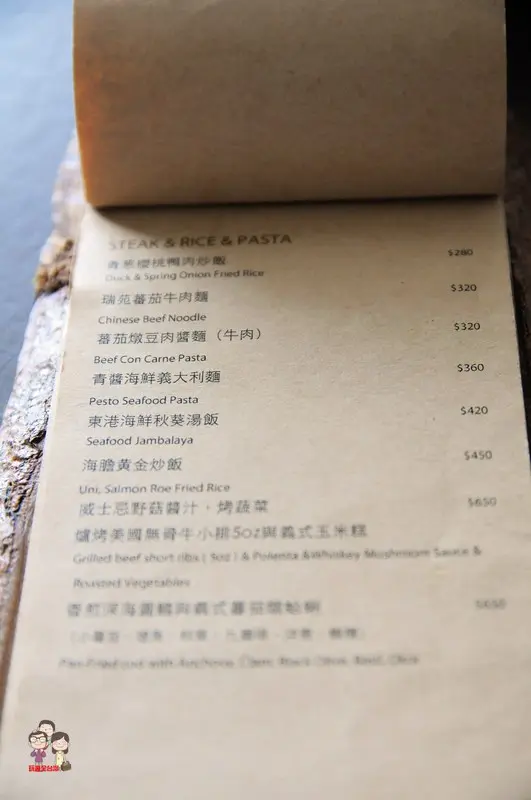 STEAK & RICE & PASTA
青蔥櫻桃鴨肉炒飯 $280
Duck & Spring Onion Fried Rice
瑞苑蕃茄牛肉麵 $320
Chinese Beef Noodle
蕃茄燉豆肉醬麵（牛肉） $320
Beef Con Carne Pasta
青醬海鮮義大利麵 $360
Pesto Seafood Pasta
東港海鮮秋葵湯飯 $420
Seafood Jambalaya
海膽黃金炒飯 $450
Uni, Salmon Roe Fried Rice
威士忌野菇醬汁，烤蔬菜 $650
爐烤美國無骨牛小排5oz與義式玉米糕
Grilled beef short ribs ( 5oz ) & Polenta &Whiskey Mushroom Sauce &
Roasted Vegetables
香煎深海圓鱈與義式蕃茄燉蛤蜊 $650
Pan-Fried cod with Anchovy, Clam, Black Olive, Basil,